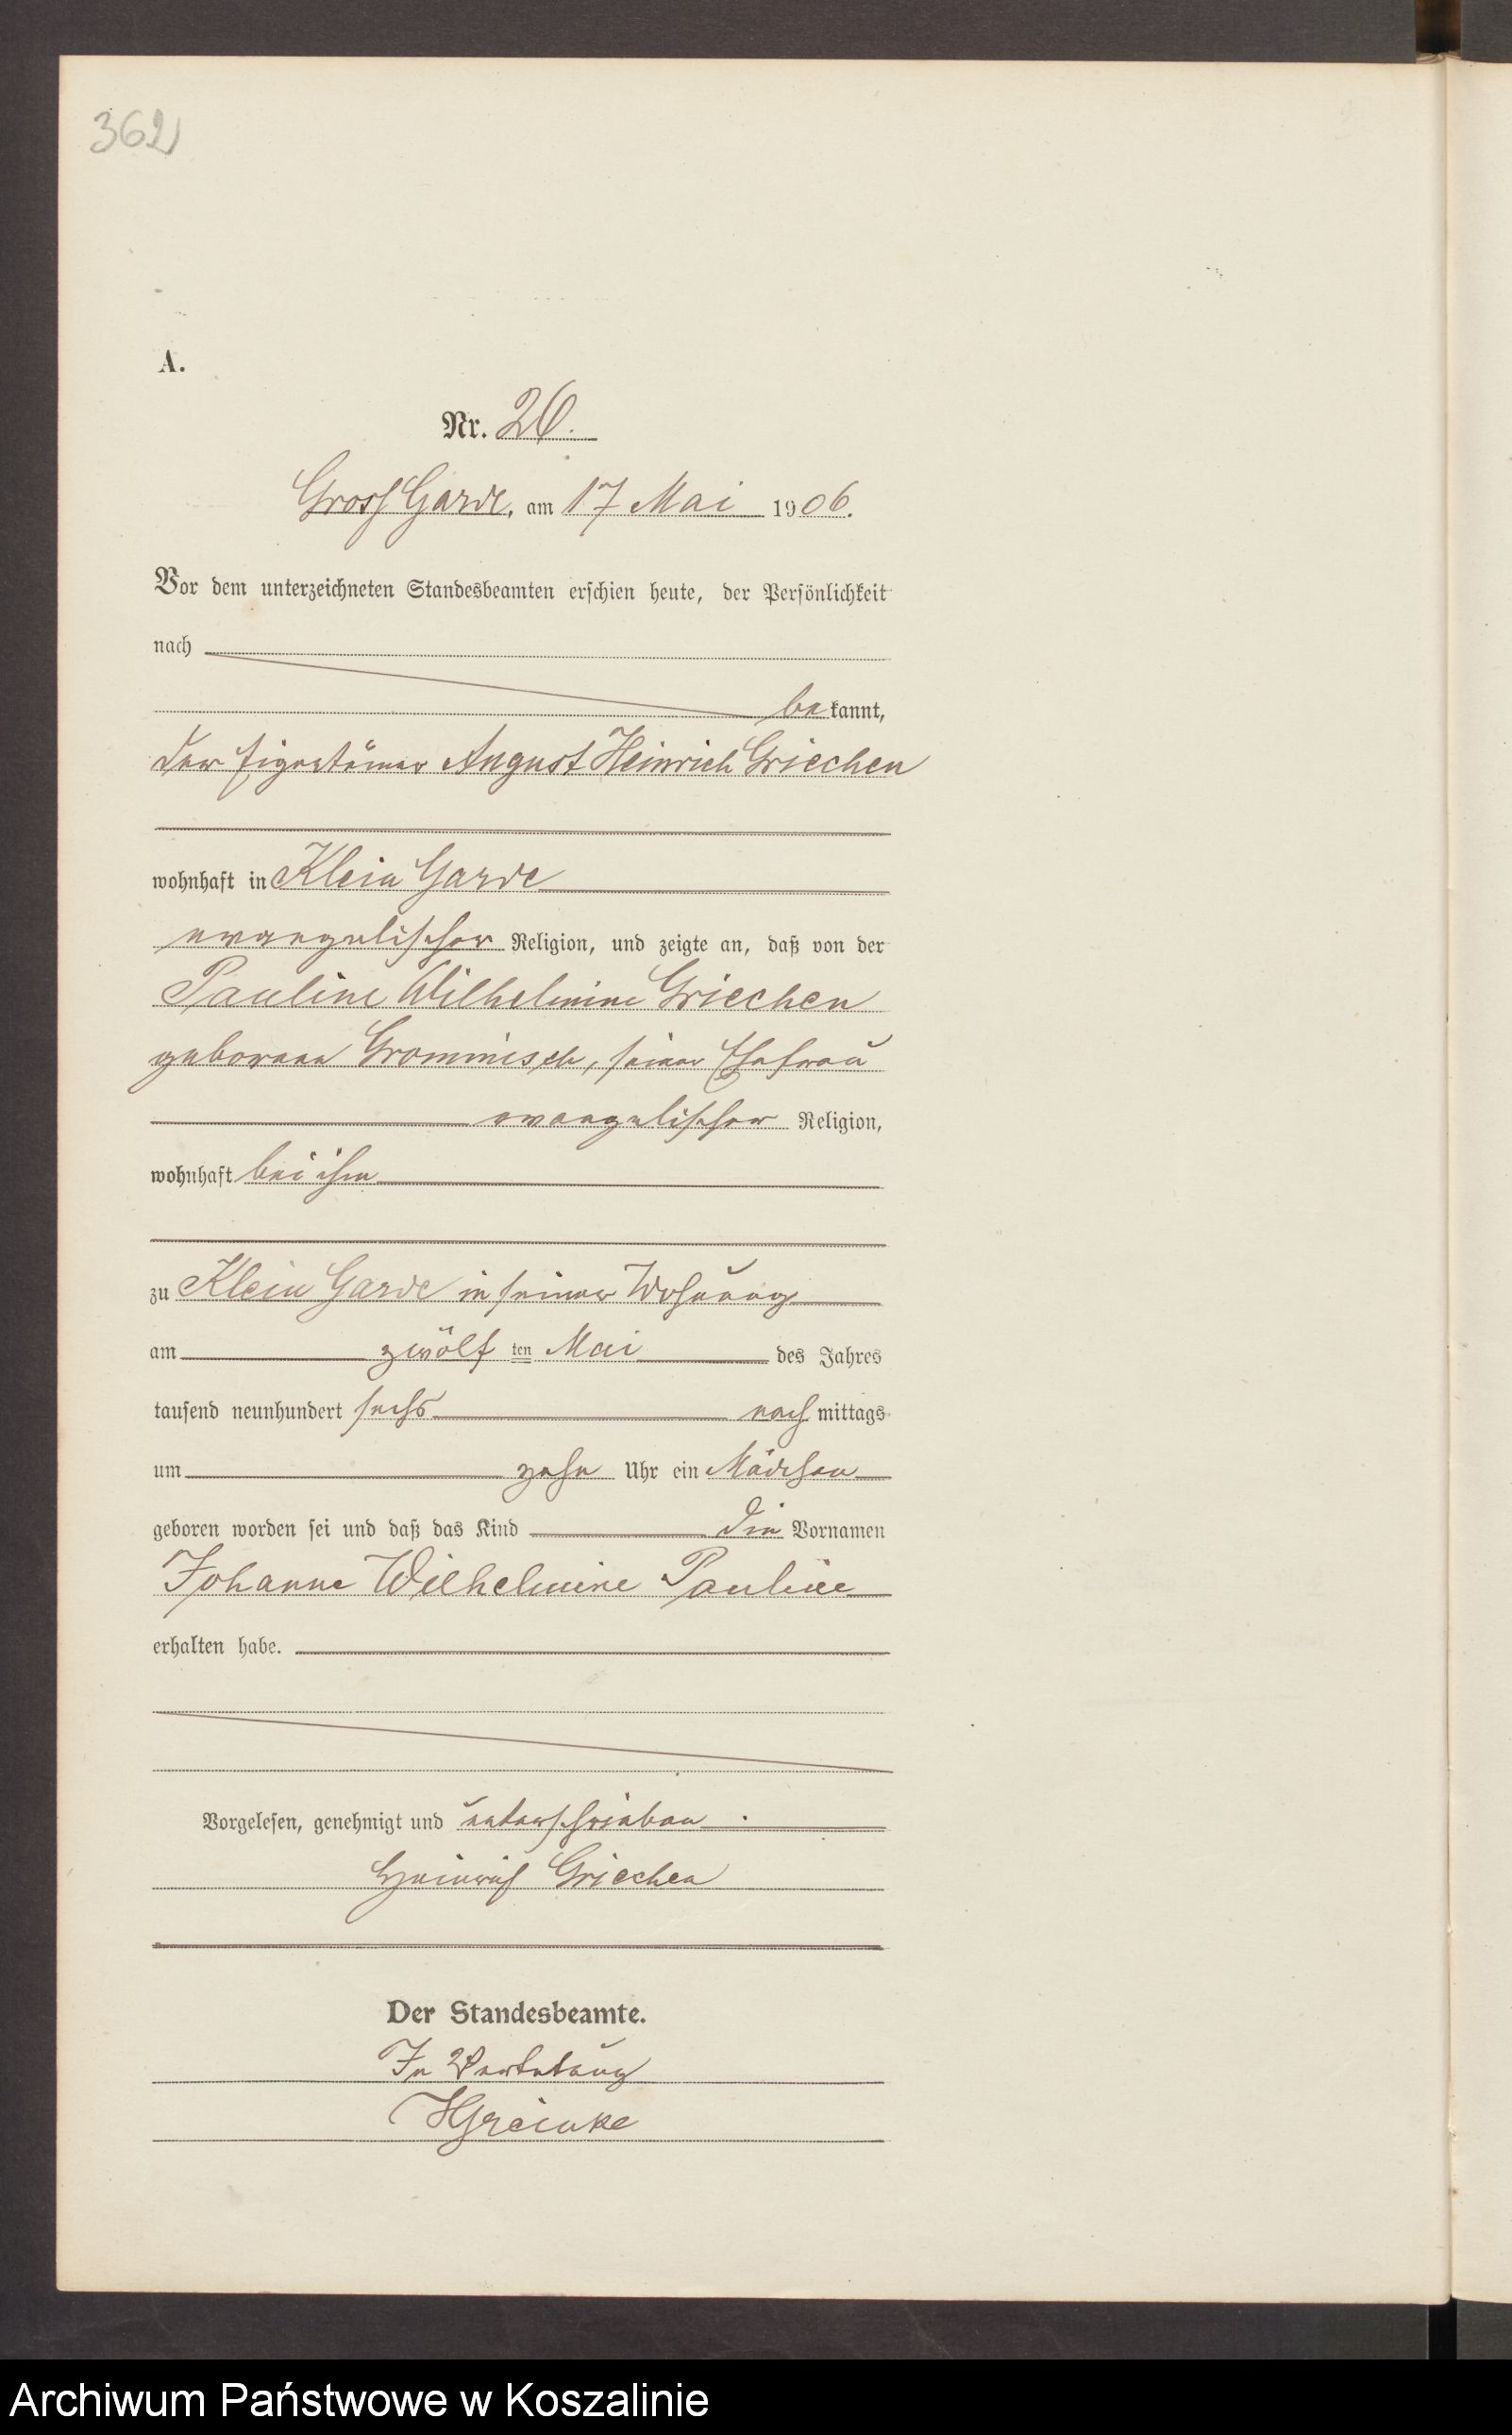 362
A.
Nr. 26.
Gross Garde, am 17 Mai 1906.
Vor dem unterzeichneten Standesbeamten erschien heute, der Persönlichkeit
nach
bekannt,
der Eigentümer August Heinrich Griechen
wohnhaft in Klein Garde
evangelischer Religion, und zeigte an, daß von der
Pauline Wilhelmine Griechen
geborene Grommisch, seiner Ehefrau
evangelischer Religion,
wohnhaft bei ihm
zu Klein Garde in seiner Wohnung
am zwölf ten Mai des Jahres
tausend neunhundert sechs nachmittags
um zehn Uhr ein Mädchen
geboren worden sei und daß das Kind die Vornamen
Johanne Wilhelmine Pauline
erhalten habe.
Vorgelesen, genehmigt und unterschrieben
Heinrich Griechen
Der Standesbeamte.
In Vertretung
HGreinke
Archiwum Państwowe w Koszalinie